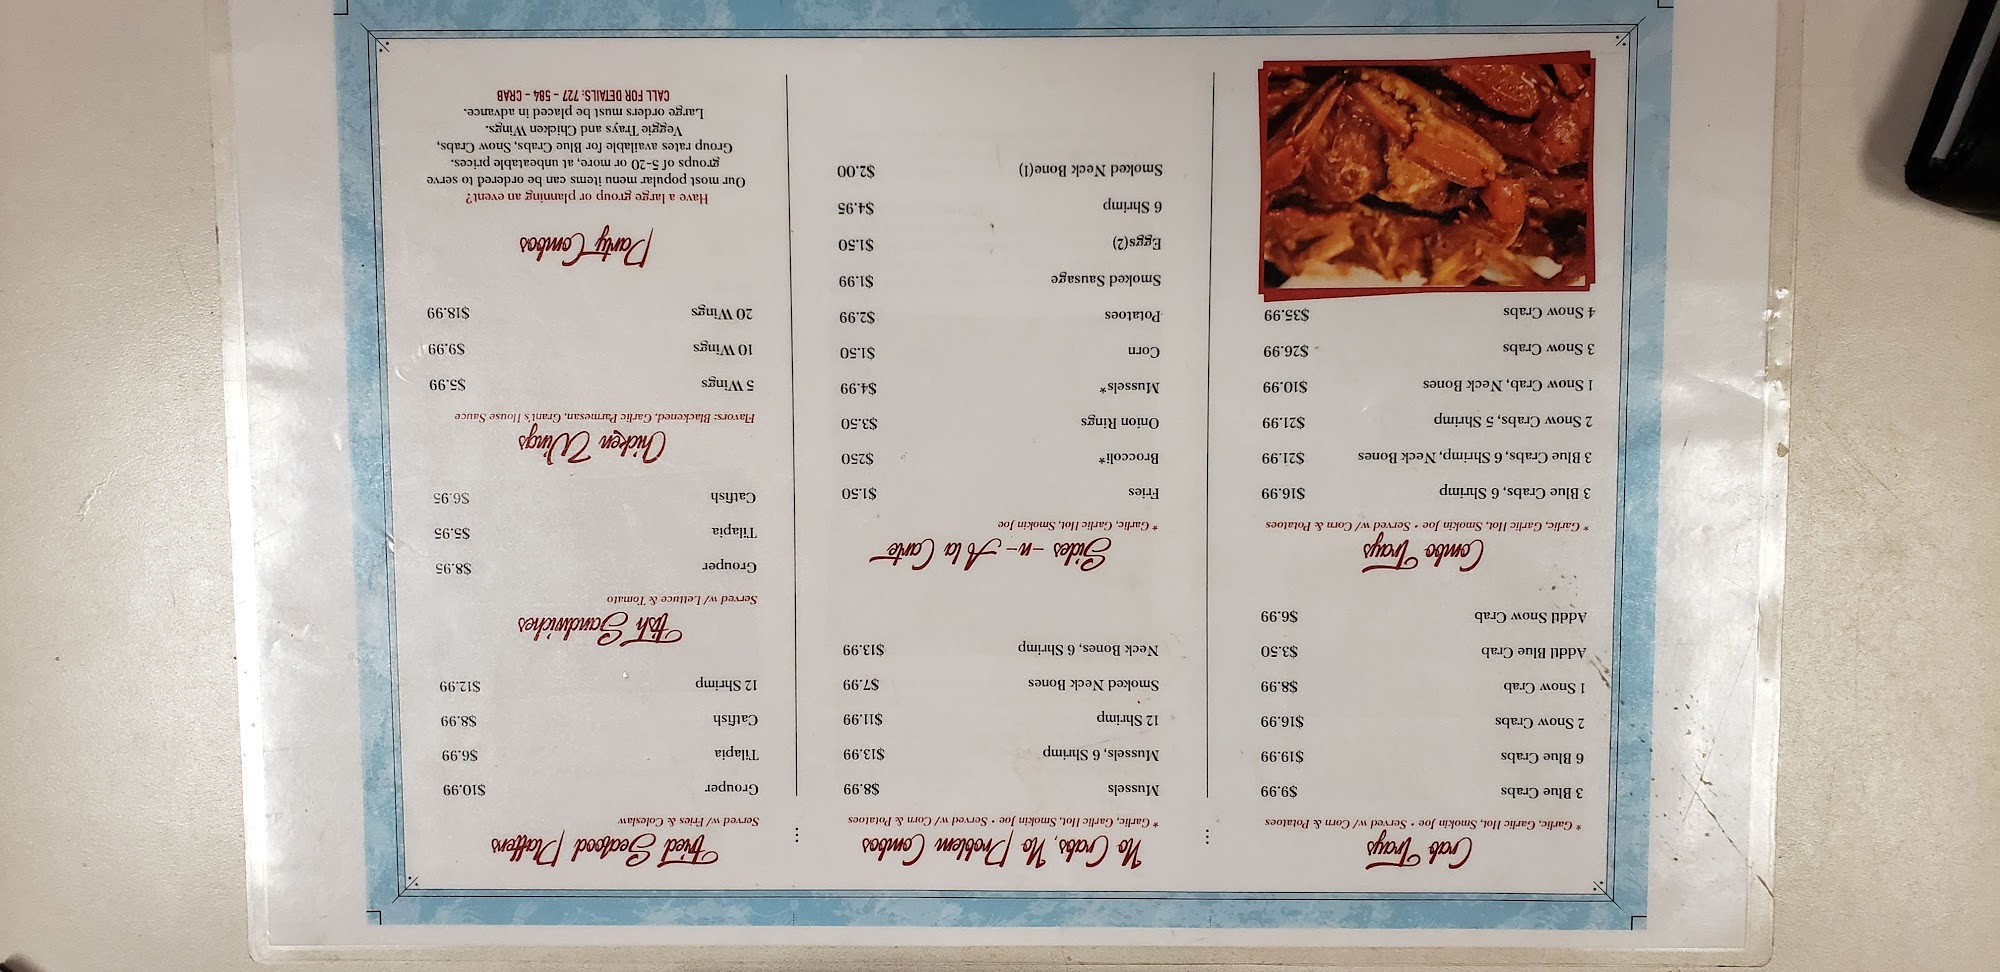 Crab Trays
* Garlic, Garlic Hot, Smokin Joe • Served w/ Corn & Potatoes
3 Blue Crabs $9.99
6 Blue Crabs $19.99
2 Snow Crabs $16.99
1 Snow Crab $8.99
Addtl Blue Crab $3.50
Addtl Snow Crab $6.99
Combo Trays
* Garlic, Garlic Hot, Smokin Joe • Served w/ Corn & Potatoes
3 Blue Crabs, 6 Shrimp $16.99
3 Blue Crabs, 6 Shrimp, Neck Bones $21.99
2 Snow Crabs, 5 Shrimp $21.99
1 Snow Crab, Neck Bones $10.99
3 Snow Crabs $26.99
4 Snow Crabs $35.99
No Crabs, No Problem Combos
* Garlic, Garlic Hot, Smokin Joe • Served w/ Corn & Potatoes
Mussels $8.99
Mussels, 6 Shrimp $13.99
12 Shrimp $11.99
Smoked Neck Bones $7.99
Neck Bones, 6 Shrimp $13.99
Sides -n- A la Carte
* Garlic, Garlic Hot, Smokin Joe
Fries $1.50
Broccoli* $250
Onion Rings $3.50
Mussels* $4.99
Corn $1.50
Potatoes $2.99
Smoked Sausage $1.99
Eggs(2) $1.50
6 Shrimp $4.95
Smoked Neck Bone(1) $2.00
Fried Seafood Platters
Served w/ Fries & Coleslaw
Grouper $10.99
Tilapia $6.99
Catfish $8.99
12 Shrimp $12.99
Fish Sandwiches
Served w/ Lettuce & Tomato
Grouper $8.95
Tilapia $5.95
Catfish $6.95
Chicken Wings
Flavors: Blackened, Garlic Parmesan, Grant's House Sauce
5 Wings $5.99
10 Wings $9.99
20 Wings $18.99
Party Combos
Have a large group or planning an event?
Our most popular menu items can be ordered to serve
groups of 5-20 or more, at unbeatable prices.
Group rates available for Blue Crabs, Snow Crabs,
Veggie Trays and Chicken Wings.
Large orders must be placed in advance.
CALL FOR DETAILS: 727 - 584 - CRAB